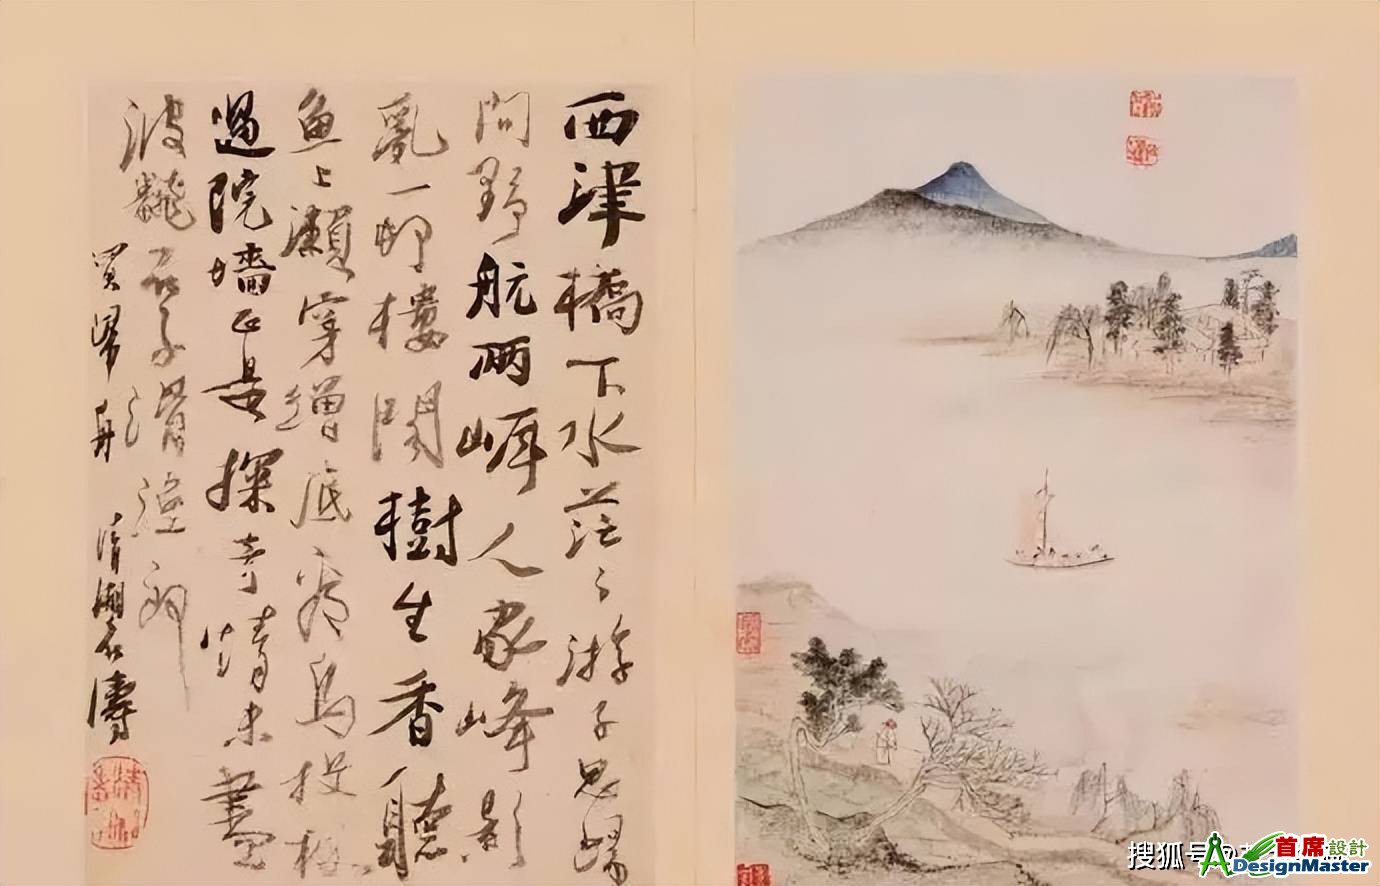 西津橋下水茫〻游子思歸
問野航兩崕人家峰影
亂一邨樓閣樹生香聽
魚上瀨穿罾底看鳥投
過院墻正是探奇情未盡
波飜石子滑
清湘石濤
搜狐号@
首席設計
DesignMaster